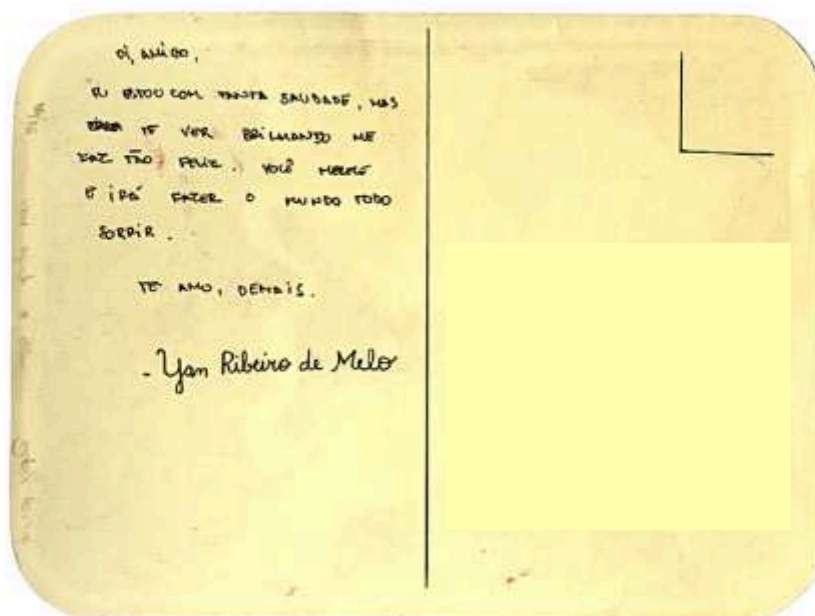 OI, AMIGO,
EU ESTOU COM TANTA SAUDADE, MAS
TE VER BRILHANDO ME
FAZ TÃO FELIZ. VOCÊ MERECE
E IRÁ FAZER O MUNDO TODO
SORRIR.
TE AMO, DEMAIS.
- Yan Ribeiro de Melo